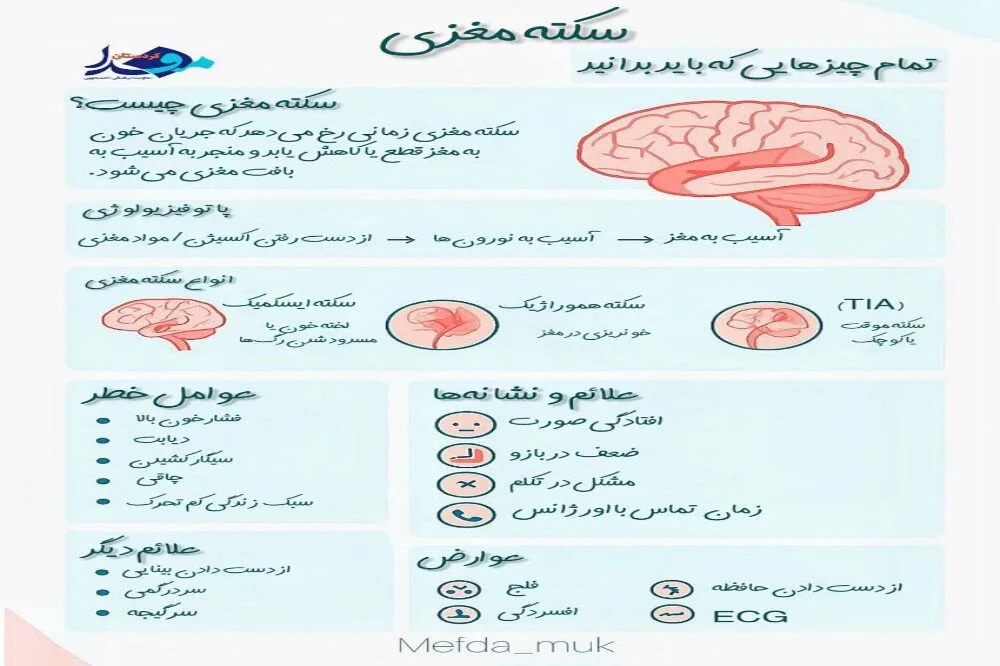 سکته مغزی
تمام چیزهایی که باید بدانید
کردستان
مفدا
سکته مغزی چیست؟
سکته مغزی زمانی رخ می‌دهد که جریان خون
به مغز قطع یا کاهش یابد و منجر به آسیب به
بافت مغزی می‌شود.
پاتوفیزیولوژی
از دست رفتن اکسیژن / مواد مغزی → آسیب به نورون‌ها → آسیب به مغز
انواع سکته مغزی
سکته ایسکمیک
لخته خون یا
مسدود شدن رگ‌ها
سکته هموراژیک
خونریزی در مغز
(TIA)
سکته موقت
یا کوچک
عوامل خطر
فشار خون بالا
دیابت
سیگار کشیدن
چاقی
سبک زندگی کم تحرک
علائم و نشانه‌ها
افتادگی صورت
ضعف در بازو
مشکل در تکلم
زمان تماس با اورژانس
علائم دیگر
از دست دادن بینایی
سردرگمی
سرگیجه
عوارض
فلج
افسردگی
از دست دادن حافظه
ECG
Mefda_muk